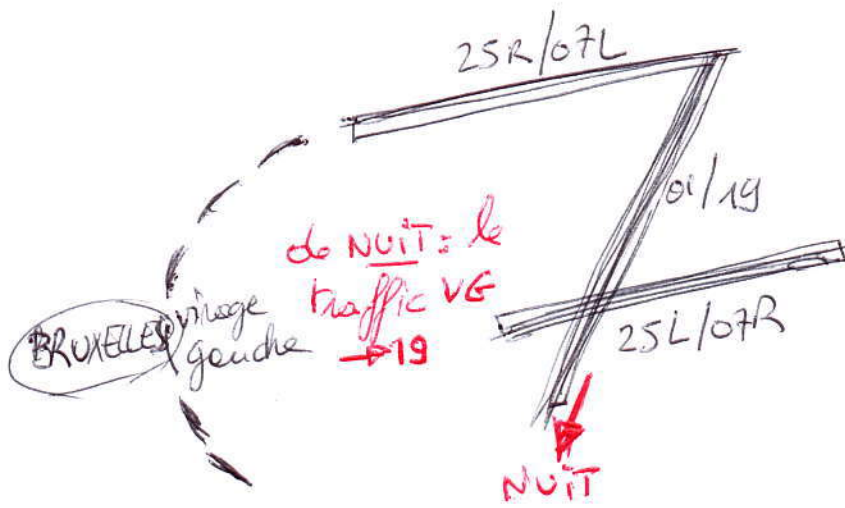 25R/07L
01/19
de NUIT: le
traffic VG
→19
BRUXELLES
virage
gauche
25L/07R
NUIT